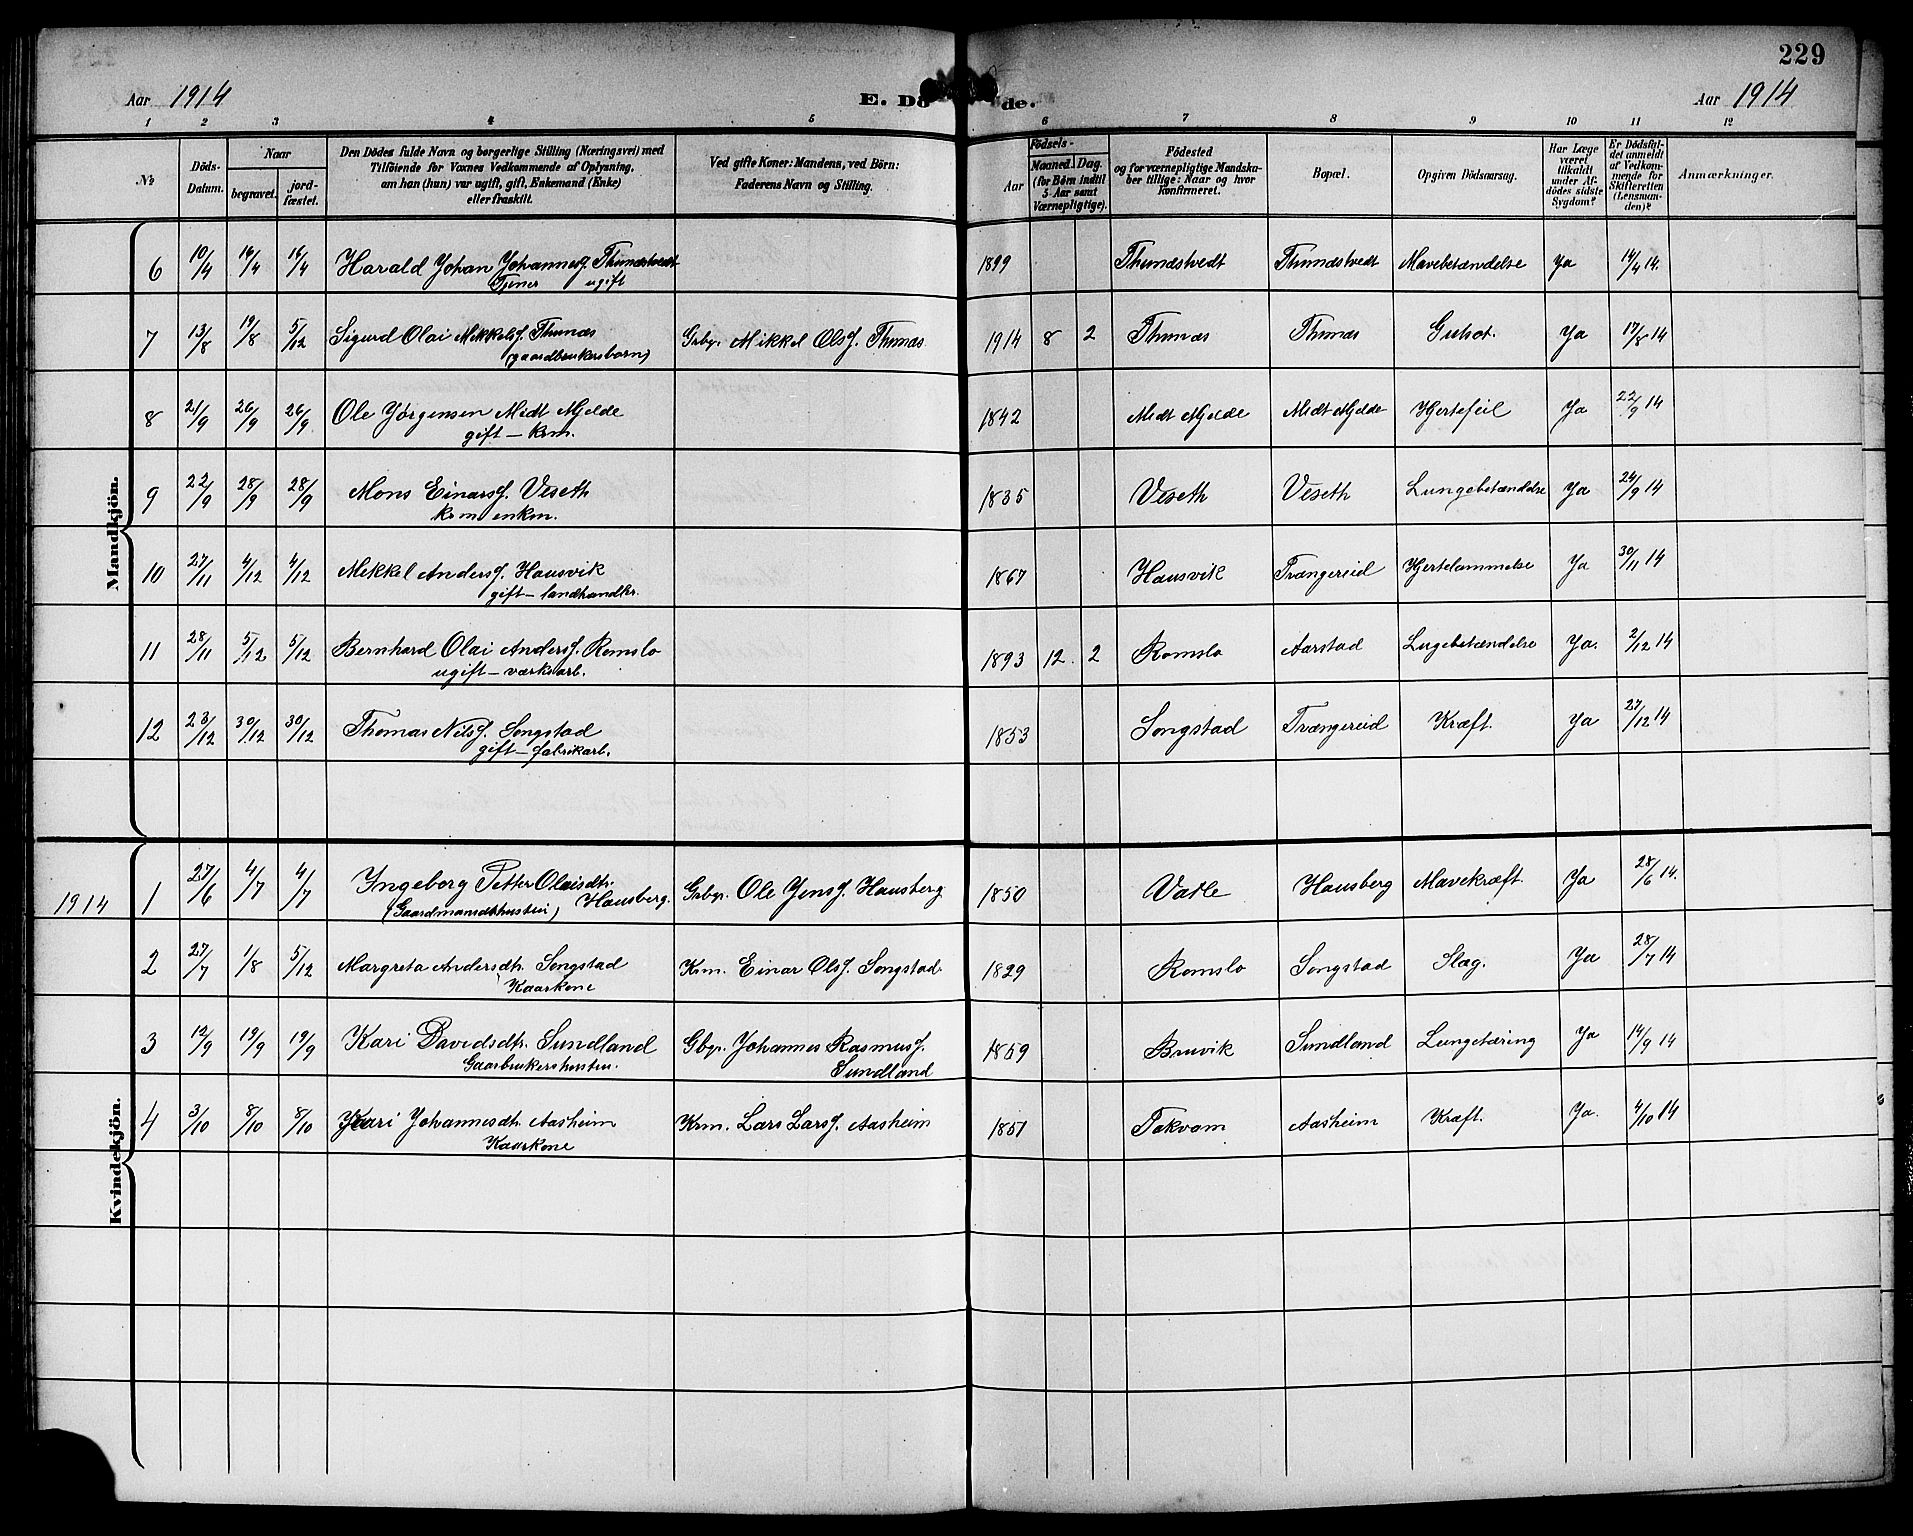 229
Aar 1914 E. Dö de. Aar 1914
1 2 3 4 5 6 7 8 9 10 11 12
№ Döds-Datum. Naar begravet. jord-fæstet. Den Dödes fulde Navn og borgerlige Stilling (Næringsvei) med Tilföiende for Voxnes Vedkommende af Oplysning, am han (hun) var ugift, gift, Enkemand (Enke) eller fraskilt. Ved gifte Koner: Mandens, ved Börn: Faderens Navn og Stilling. Födsels- Aar Maaned. Dag. (for Börn indtil 5 Aar samt Værnepligtige). Födested og for værnepligtige Mandskaber tillige: Naar og hvor konfirmeret. Bopæl. Opgiven Dödsaarsag. Har Læge været tilkaldt under Afdödes sidste Sygdom? Er Dödsfaldet anmeldt af Vedkommende for Skifteretten (Lensmanden)? Anmærkninger.
Mandkjön.
6 10/4 16/4 16/4 Harald Johan Johannesf. Thunestvedt 1899 Thunæstvedt Thunæstvedt Mavebetændelse Ja 14/4 14.
Tjener ugift
7 13/8 19/8 5/12 Sigurd Olai Mikkelsf. Thunæs Grbr. Mikkel Olsf. Thunæs 1914 8 2 Thunæs Thunæs Ja 17/8 14
(gaardbrukersbarn)
8 21/9 26/9 26/9 Ole Jørgensen Midt Mjelde 1842 Midt Mjelde Midt Mjelde Hjertefeil Ja 22/9 14
gift – krm.
9 22/9 28/9 28/9 Mons Einarsf. Veseth 1835 Veseth Veseth Lungebetændelse Ja 24/9 14
krm enkm.
10 27/11 4/12 4/12 Mikkel Andersf. Hausvik 1867 Hausvik Trængereid Hjertelammelse Ja 30/11 14
gift – landhandler.
11 28/11 5/12 5/12 Bernhard Olai Andersf. Romslo 1893 12. 2 Romslo Aarstad Lugebetændelse Ja. 2/12 14
ugift – værksarb.
12 23/12 30/12 30/12 Thomas Nilsf. Songstad 1853 Songstad Trængereid Kræft. Ja 27/12 14
gift – fabrikarb.
Kvindekjön.
1914 1 27/6 4/7 4/7 Ingeborg Petter Olaisdtr. Hausberg. Grbr. Ole Jensf. Hausberg 1850 Vatle Hausberg Mavekræft. Ja 28/6 14.
(Gaardmandshustru)
2 27/7 1/8 5/12 Margreta Andersdtr. Songstad Krm. Einar Olsf. Songstad. 1829 Romslo Songstad Slag. Ja 28/7 14
Kaarkone
3 12/9 19/9 19/9 Kari Davidsdtr. Sundland Gbr. Johannes Rasmusf. 1859 Bruvik Sundland Lungetæring Ja 14/9 14
Gaarbrukershustru. Sundland
4 3/10 8/10 8/10 Kari Johannesdtr. Aasheim Krm. Lars Larsf. Aasheim 1851 Takvam Aasheim Kræft. Ja. 4/10 14
Kaarkone